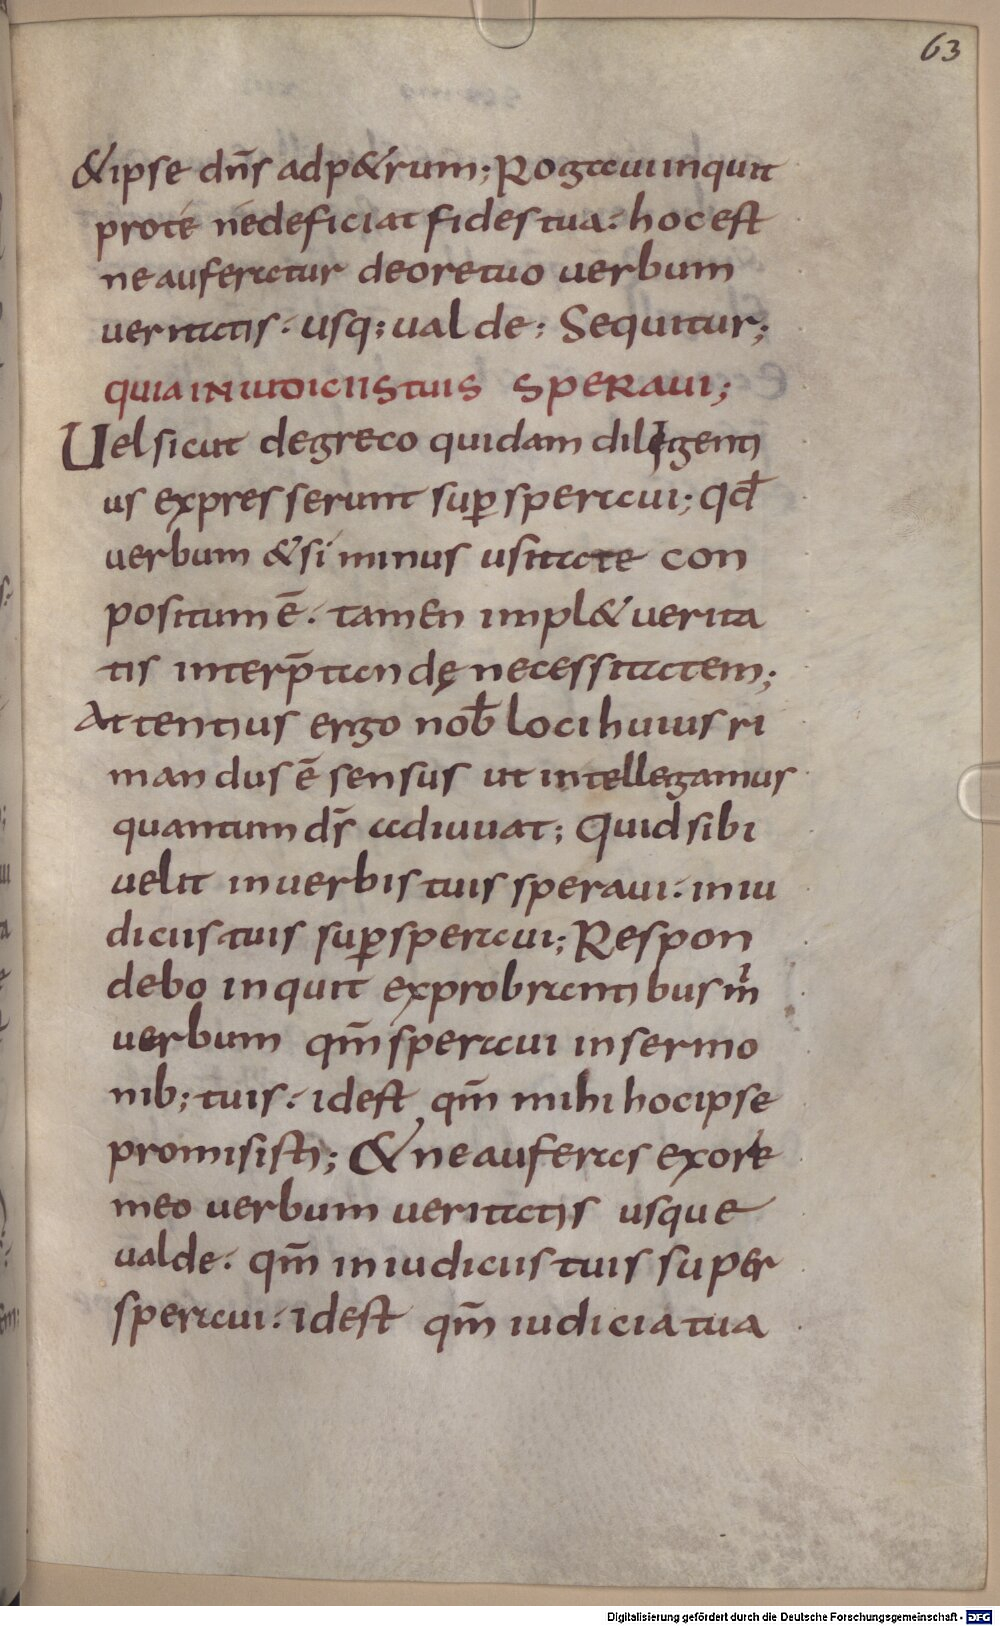 63
&ipse dn̄s adp&rum; Rogauiinquit
prote nedeficiat fides tua: hoc est
ne auferatur deoretuo uerbum
ueritatis. usq; ualde; Sequitur;
quia IN IUDICIIS tuis SPERAUI;
Uel sicut degreco quidam diligenti
us expresserunt sup̲ speraui; qd̄
uerbum &si minus usitate con
positum ē. tamen impl& uerita
tis interp̄tandę necessitatem;
Attentius ergo nob̄ loci huius ri
mandus ē sensus ut intellegamus
quantum dr̄ adiuuat; Quid sibi
uelit inuerbis tuis speraui. iniu
diciis tuis sup̲speraui; Respon
debo inquit exprobrantibus m̄
uerbum qm̄ speraui insermo
nib; tuis. idest qm̄ mihi hocipse
promisisti; & ne auferas exore
meo uerbum ueritatis usque
ualde. qm̄ iniudiciis tuis super
speraui. idest qm̄ iudicia tua
Digitalisierung gefördert durch die Deutsche Forschungsgemeinschaft - DFG